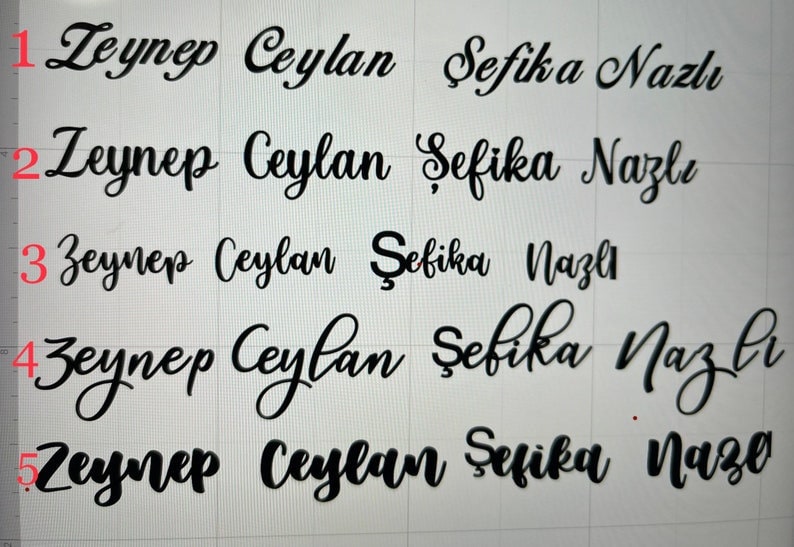 1 Zeynep Ceylan Şefika Nazlı
2 Zeynep Ceylan Şefika Nazlı
3 Zeynep Ceylan Şefika Nazlı
4 Zeynep Ceylan Şefika Nazlı
5 Zeynep Ceylan Şefika Nazlı